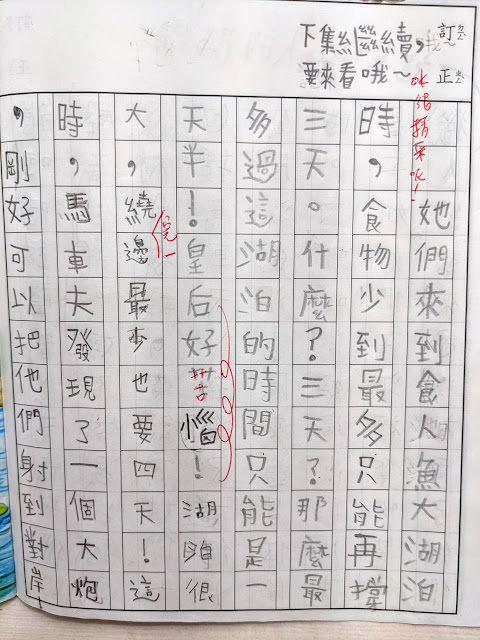 下集繼續，
要來看哦～
訂正
她們來到食人魚大湖泊
時，食物少到最多只能再撐
三天。什麼？三天？那麼最
多過這湖泊的時間只能是一
天半！皇后好苦惱！湖很
大，繞邊最少也要四天！這
時，馬車夫發現了一個大炮
，剛好可以把他們射到對岸